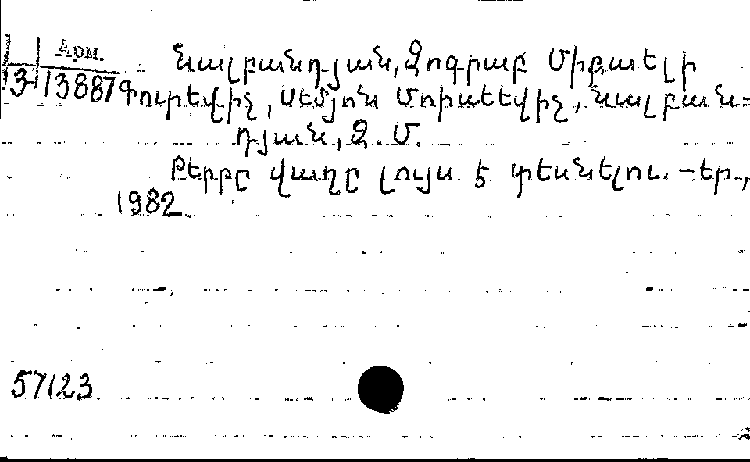 Арм.
3-13887
Նալբանդյան, Զոգրաբ Միքաելի
Գուրեվիչ, Սեմյոն Մոիսեեվիչ, Նալբան-
դյան, Զ. Մ.
Թերթը վաղը լույս է տեսնելու. -Եր.,
1982
57123